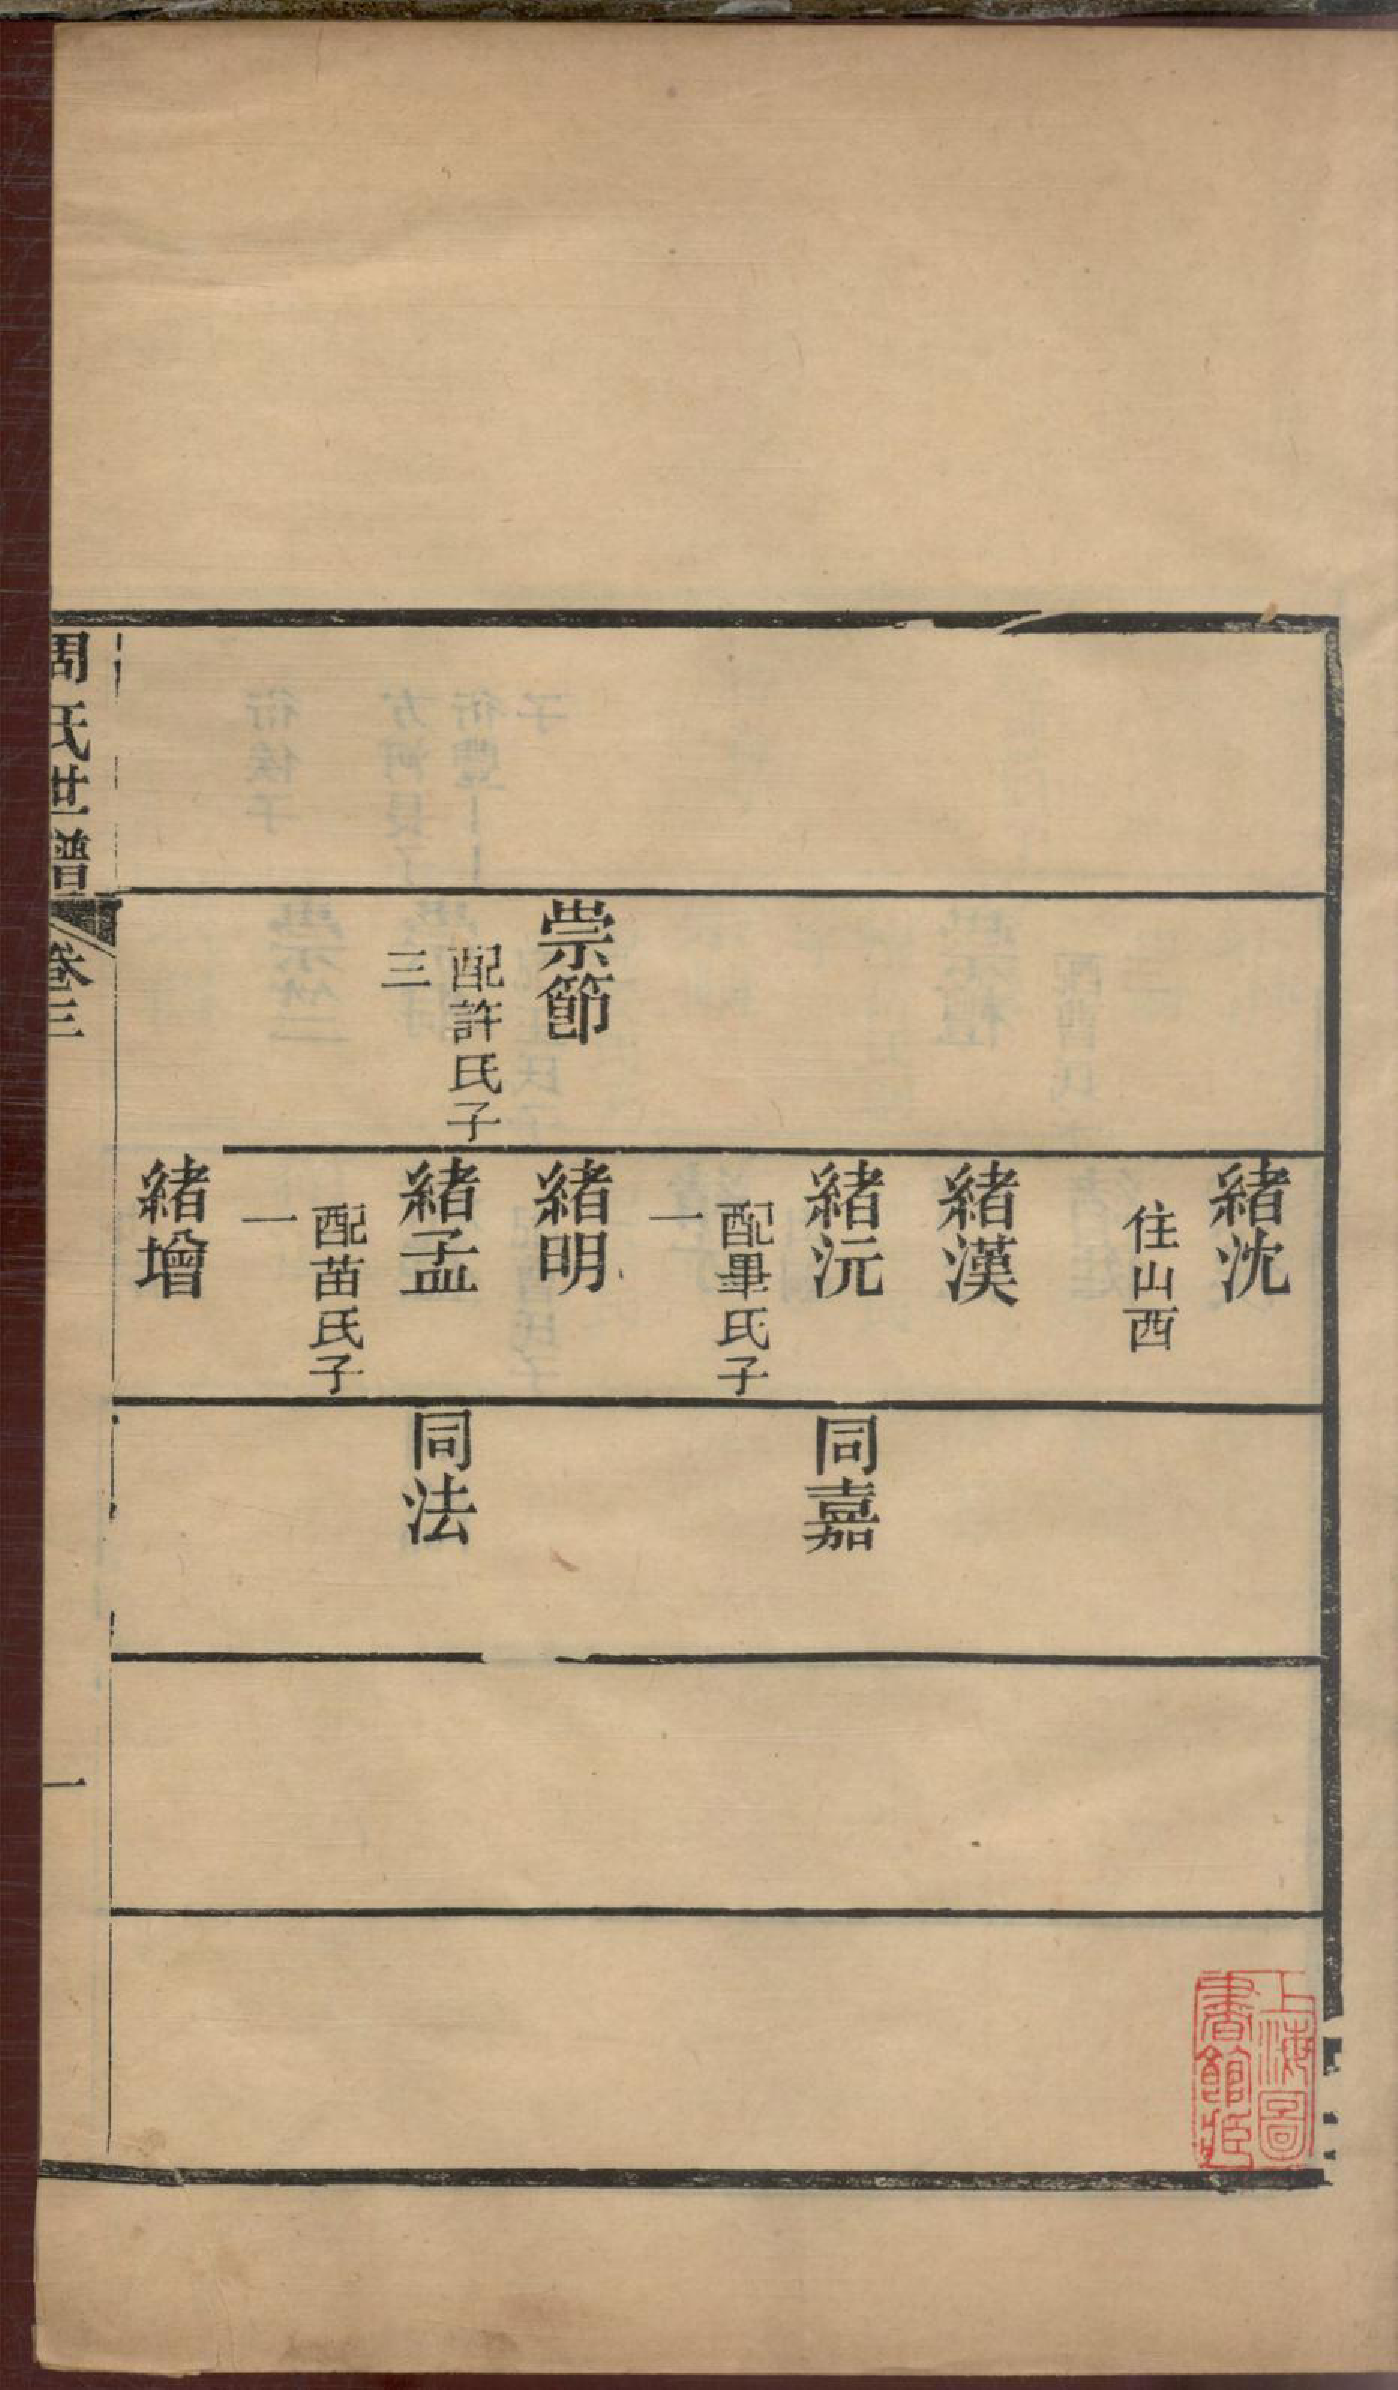 崇節
配許氏子
三
緒沈
住山西
緒漢
緒沅
配畢氏子
一
緒明
緒孟
配苗氏子
一
緒增
同嘉
同法
周氏世譜
卷三
一
上海圖
書館藏